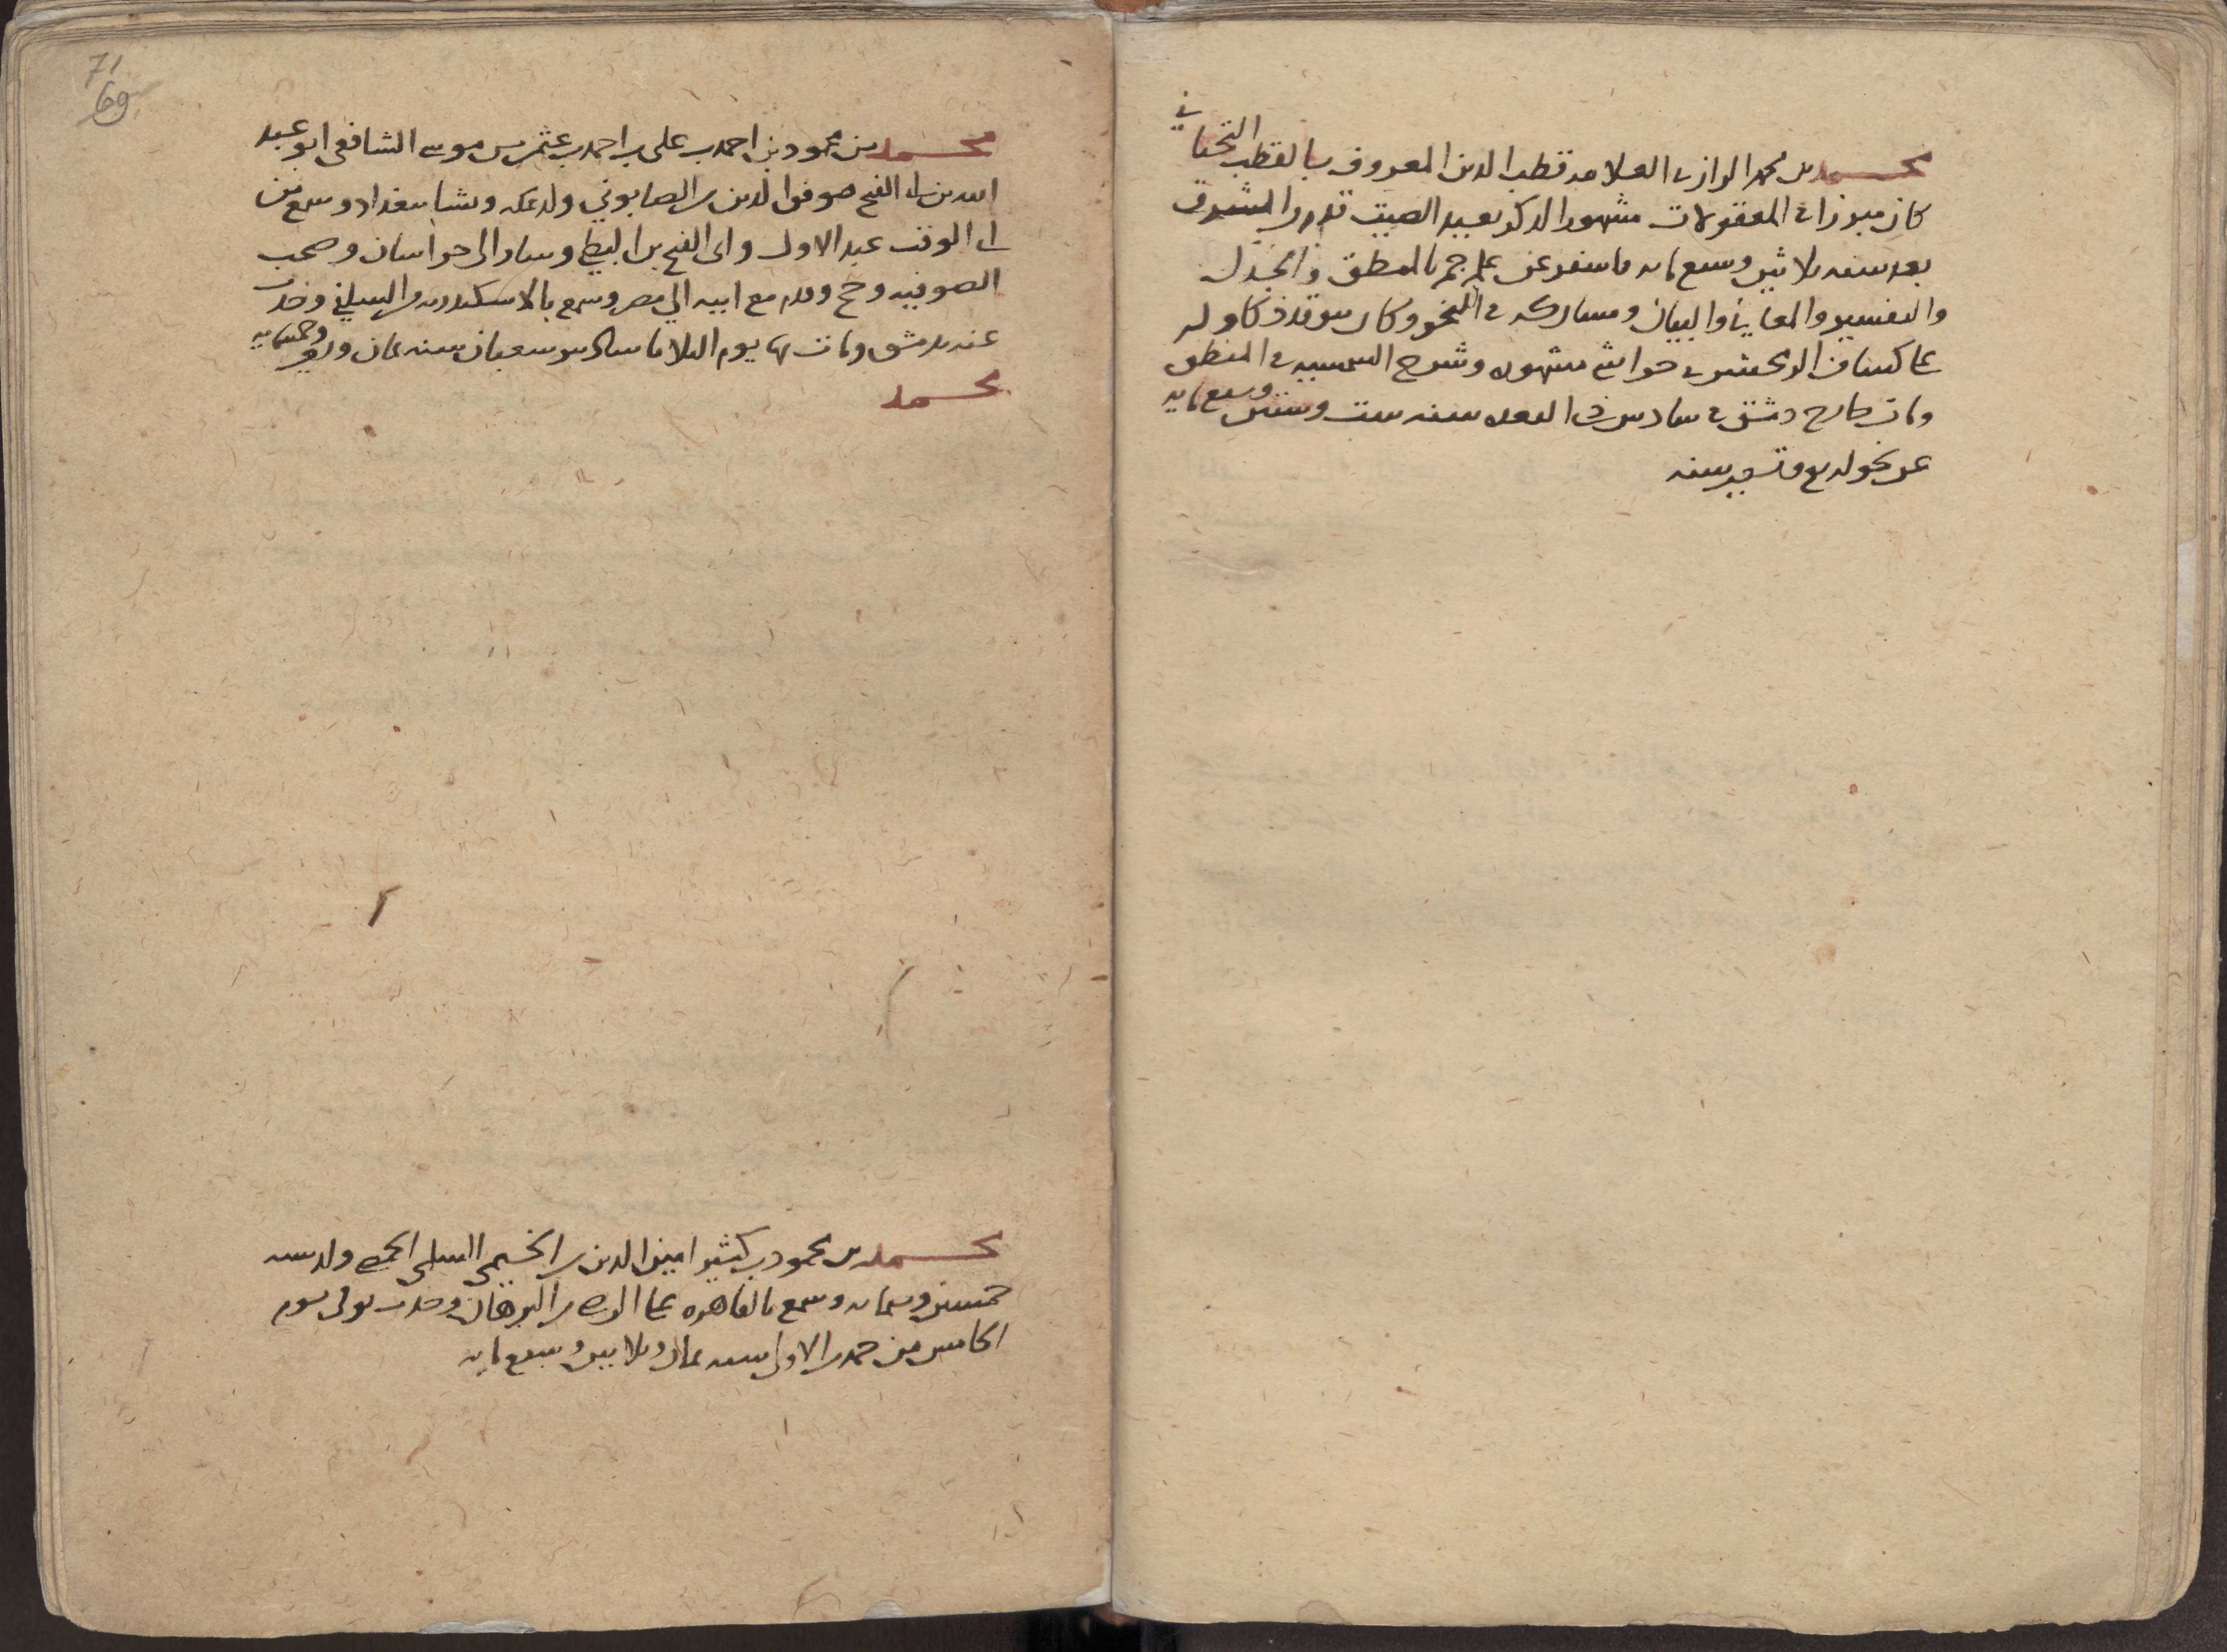 محمد بن محمد الرازي العلامه قطب الدين المعروف بالقطب التحتاني
كان مبرزا في المعقولات مشهور الذكر بعيد الصيت قدم من الشرق
بعد سنه ثلاثين وسبع مايه فاسفر عن علم جم بالمنطق والجدل
والتفسير والمعاني والبيان ومشاركه في النحو وكان يتوقد ذكا وله
على كشاف الزمخشري حواشي مشهوره وشرح الشمسيه في المنطق
ومات خارج دمشق في سادس ذي القعده سنه ست وستين وسبع مايه
عن نحو اربع وتسعين سنه
71
69
محمد بن محمود بن احمد بن علي بن احمد بن عثمن بن موسى الشافعي ابو عبد
الله بن ابي الفتح موفق الدين بن الصابوني ولد بمكه ونشا ببغداد وسمع من
ابي الوقت عبد الاول وابي الفتح بن البطي وسار الى خراسان وصحب
الصوفيه وحج وقدم مع ابيه الى مصر وسمع بالاسكندريه من السلفي وحدث
عنه بدمشق ومات بها يوم الثلاثا سادس شعبان سنه ثمان وتسعين وخمسمايه
محمد
محمد بن محمود بن كثير امين الدين بن الخيمي السلمي ولد سنه
خمسين وستمايه وسمع بالقاهره على الرضي بن البرهان وحدث توفي يوم
الخامس من جمدى الاولى سنه ثمان وثلاثين وسبع مايه